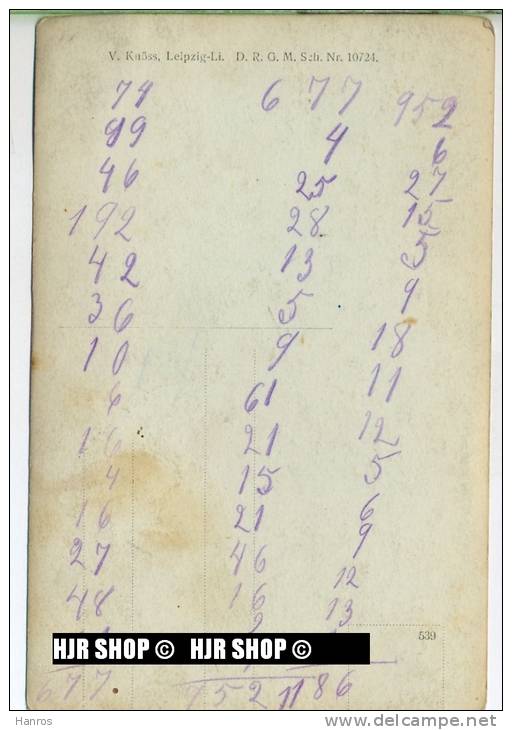 V. Knöss, Leipzig-Li. D. R. G. M. Sch. Nr. 10724.
79
99
46
192
42
36
10
6
16
4
16
27
48
677
677
4
25
28
13
5
9
61
21
15
21
46
16
952
959
6
27
15
5
9
18
11
12
5
6
9
12
13
1186
539
HJR SHOP © HJR SHOP ©
Hanros
www.delcampe.net